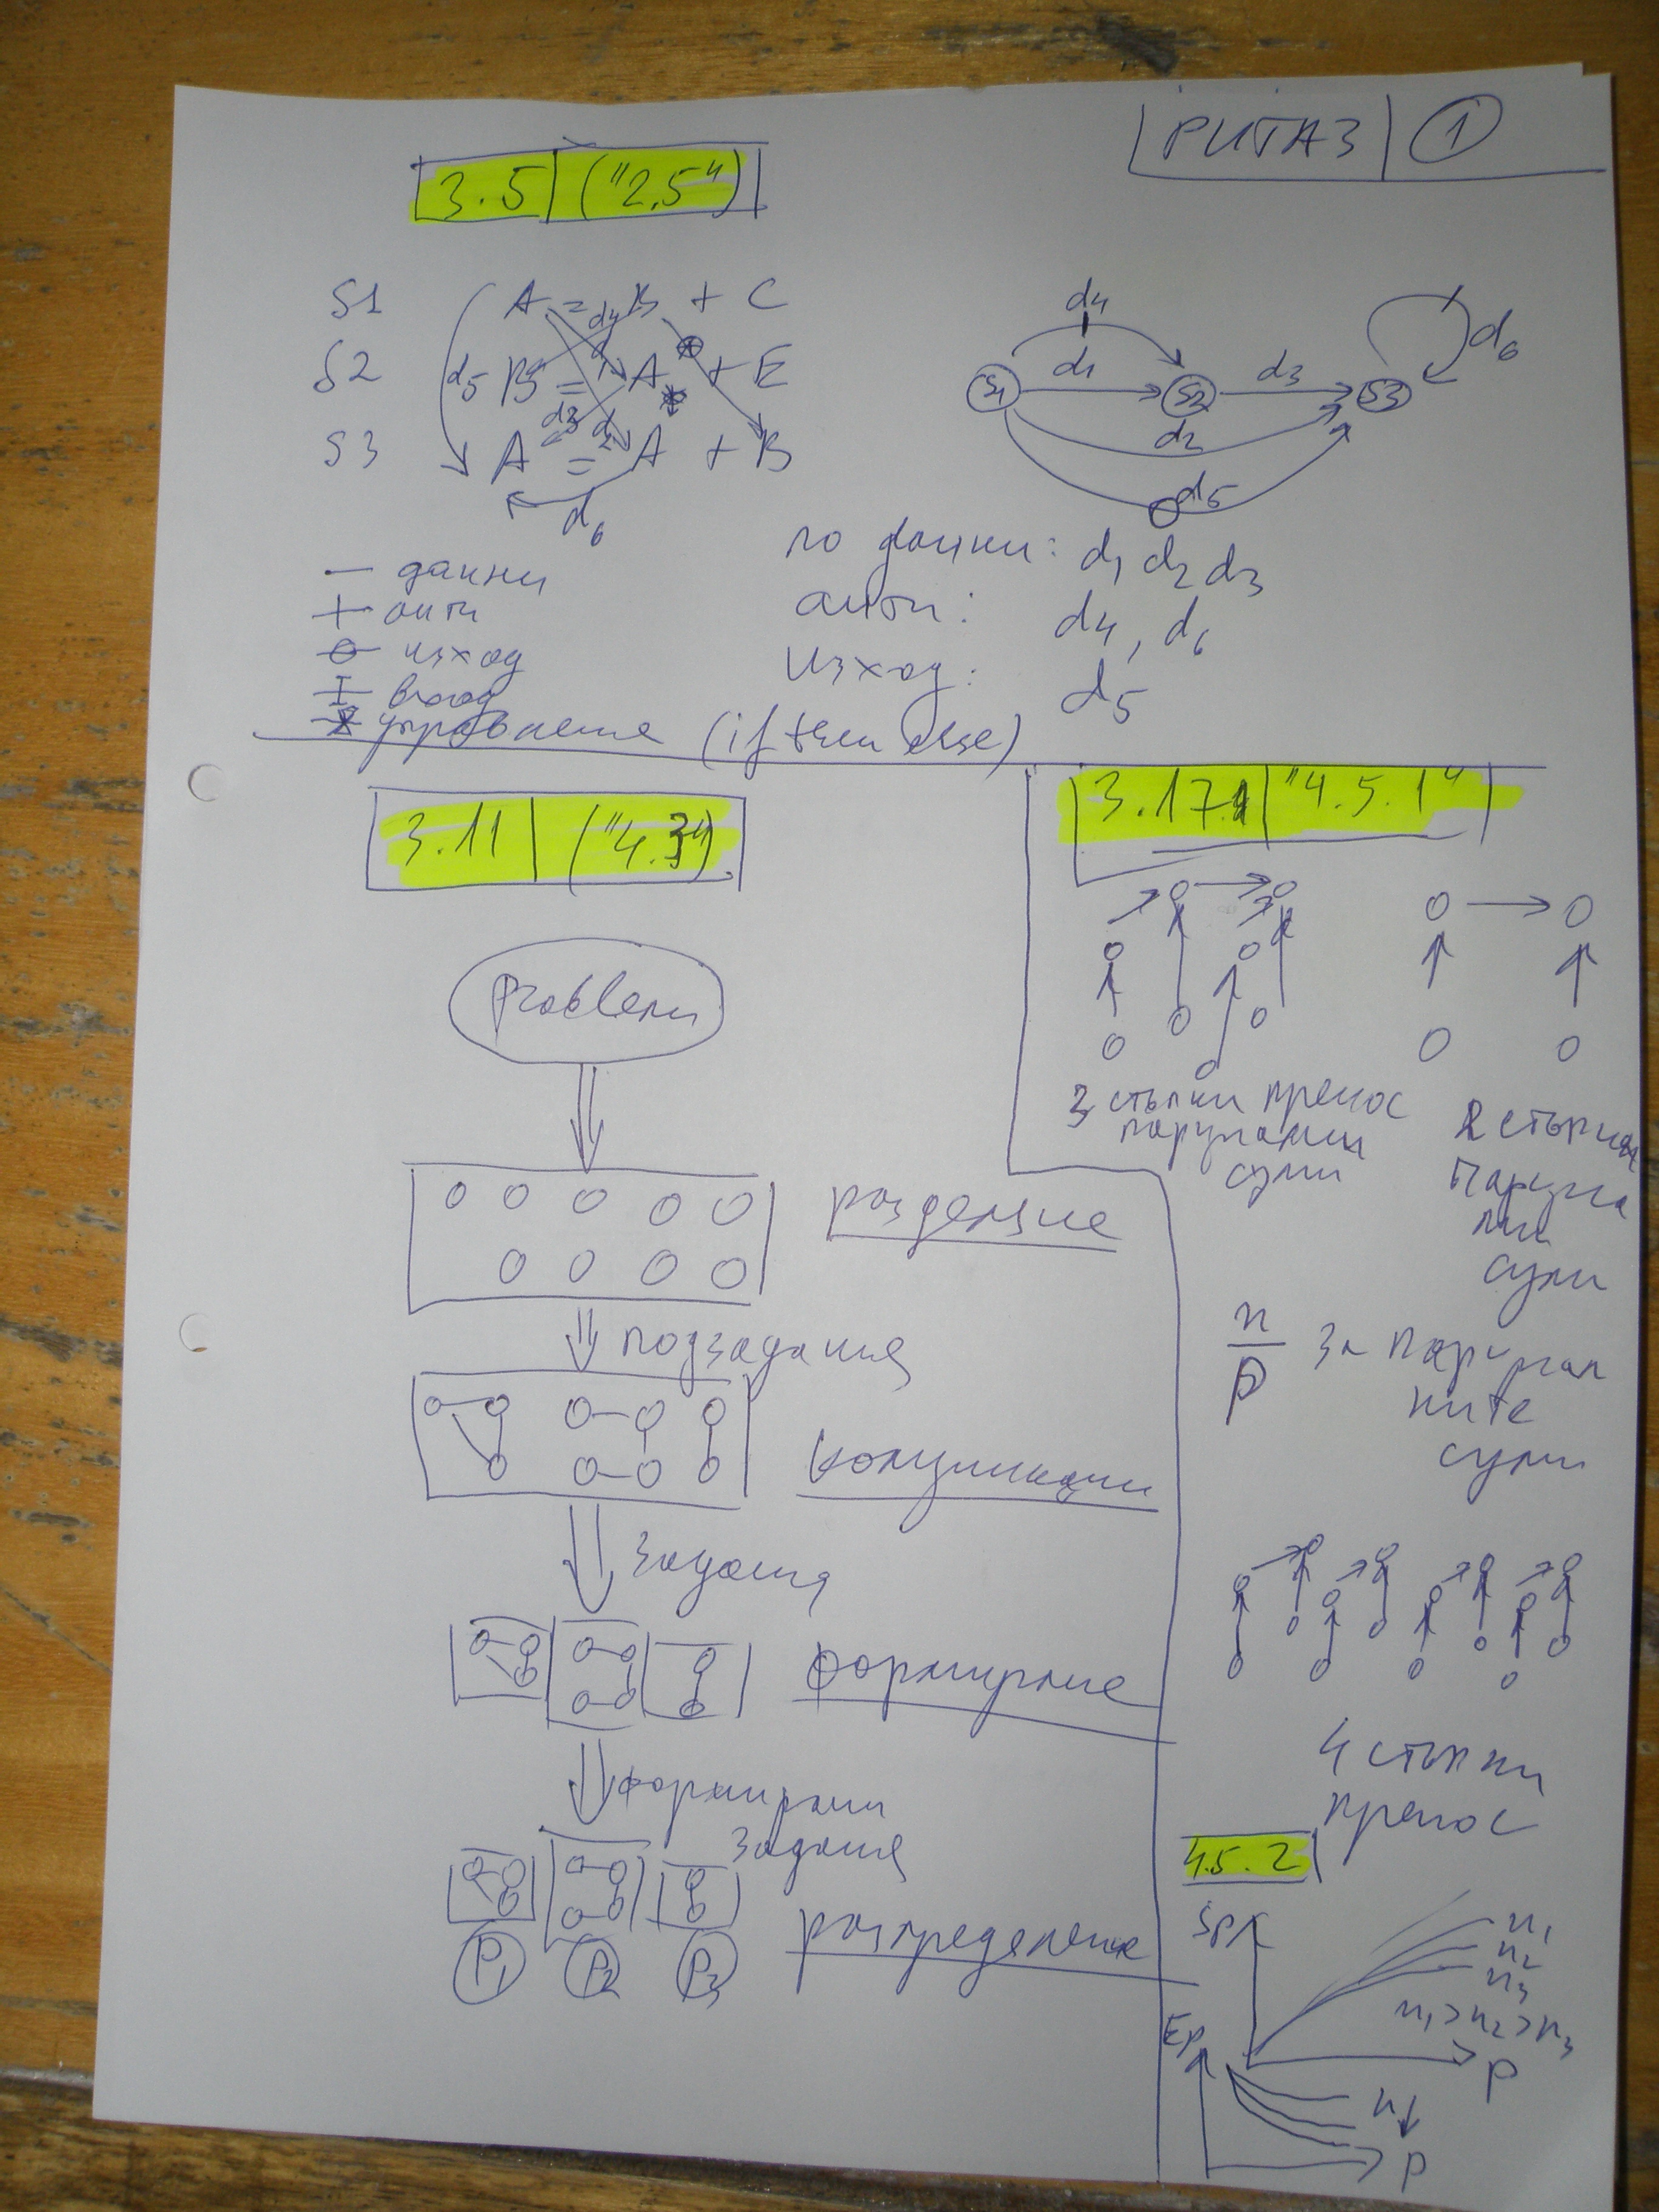 РИТАЗ 1
3.5 ("2,5")
S1 A = B + C
S2 B = A + E
S3 A = A + B
d4
d1
d5
d3
d2
d6
d4
d1
d3
d6
S1 S2 S3
d2
d5
— данни
анти
изход
вход
управление (if then else)
по данни: d1 d2 d3
анти: d4, d6
изход: d5
3.11 ("4.3")
Problem
разделяне
подзадания
комуникации
задания
формиране
формирани
задания
P1 P2 P3
разпределение
3.17.1 "4.5.1"
3 стъпки пренос
парциални
суми
2 стъпки
парциа
лни
суми
n
p
за парциал
ните
суми
4 стъпки
пренос
4.5.2
Sp
n1
n2
n3
n1 > n2 > n3
p
Ep
n↓
p